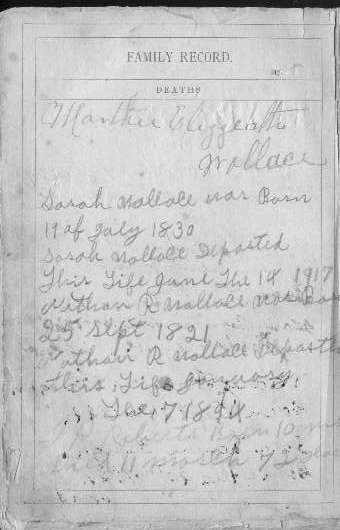 FAMILY RECORD.
DEATHS
Manthie Elizzeath
Wallace
Sarah Wallace was Born
19 of July 1830
Sarah Wallace Departed
This Life June The 14 1917
Nathan R Wallace was Bor
25 Sept 1821
Nathan R Wallace Departe
This Life January
The 7 1894
Roberts
11 month